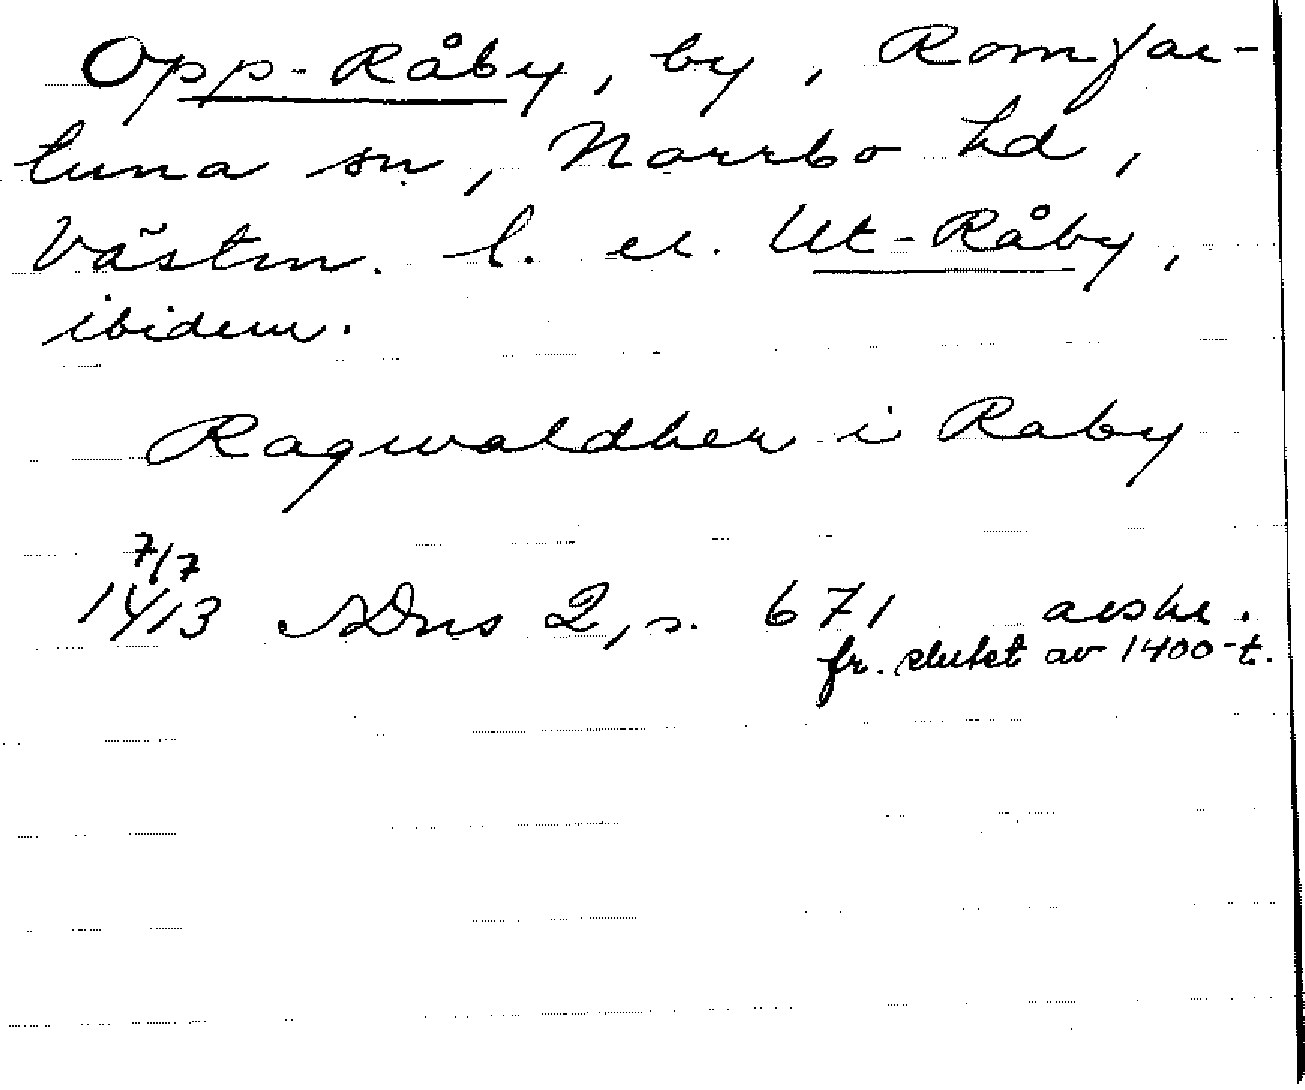 Opp-Råby, by, Romfar-
tuna sn, Norrbo hd,
Västm. l. el. Ut-Råby,
ibidem.
Ragwaldher i Raby
7/7
1413 SDns 2, s. 671 avskr.
fr. slutet av 1400-t.